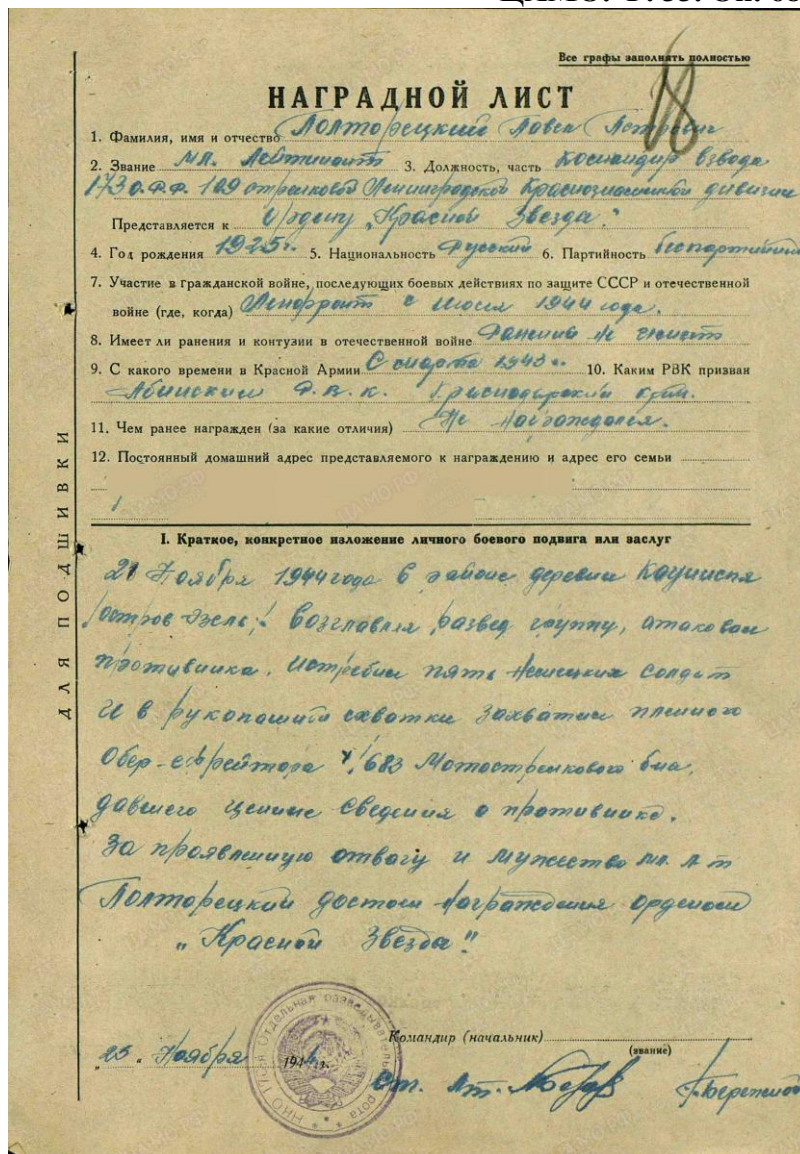 Все графы заполнять полностью
18
НАГРАДНОЙ ЛИСТ
1. Фамилия, имя и отчество Полторецкий Павел Петрович
2. Звание Мл. Лейтинант 3. Должность, часть Командир взвода
173 О.Р.Р. 109 стрелковой Ленинградской Краснознаменной дивизии
Представляется к Ордену "Красной Звезда."
4. Год рождения 1925 г. 5. Национальность Русский 6. Партийность беспартийный
7. Участие в гражданской войне, последующих боевых действиях по защите СССР и отечественной
войне (где, когда) Ленфронт с июля 1944 года.
8. Имеет ли ранения и контузии в отечественной войне Ранений не имеет
9. С какого времени в Красной Армии С марта 1943 г. 10. Каким РВК призван
Абинским Р.В.К. Краснодарский край.
11. Чем ранее награжден (за какие отличия) Не награждался.
12. Постоянный домашний адрес представляемого к награждению и адрес его семьи
ДЛЯ ПОДШИВКИ
I. Краткое, конкретное изложение личного боевого подвига или заслуг
21 Ноября 1944 года в районе деревни Кауниспя
/остров Эзель/. Возглавляя развед группу, атаковал
противника. Истребил пять немецких солдат
и в рукопашной схватки захватил пленного
Обер-ефрейтора 683 Мотострелкового б-на,
давшего ценные сведения о противнике.
За проявленную отвагу и мужество мл. л-т
Полторецкий достоин награждения орденом
"Красной Звезда".
Командир (начальник)
(звание)
23. Ноября 194
Ст. Лт.
Отдельная разведывательная рота